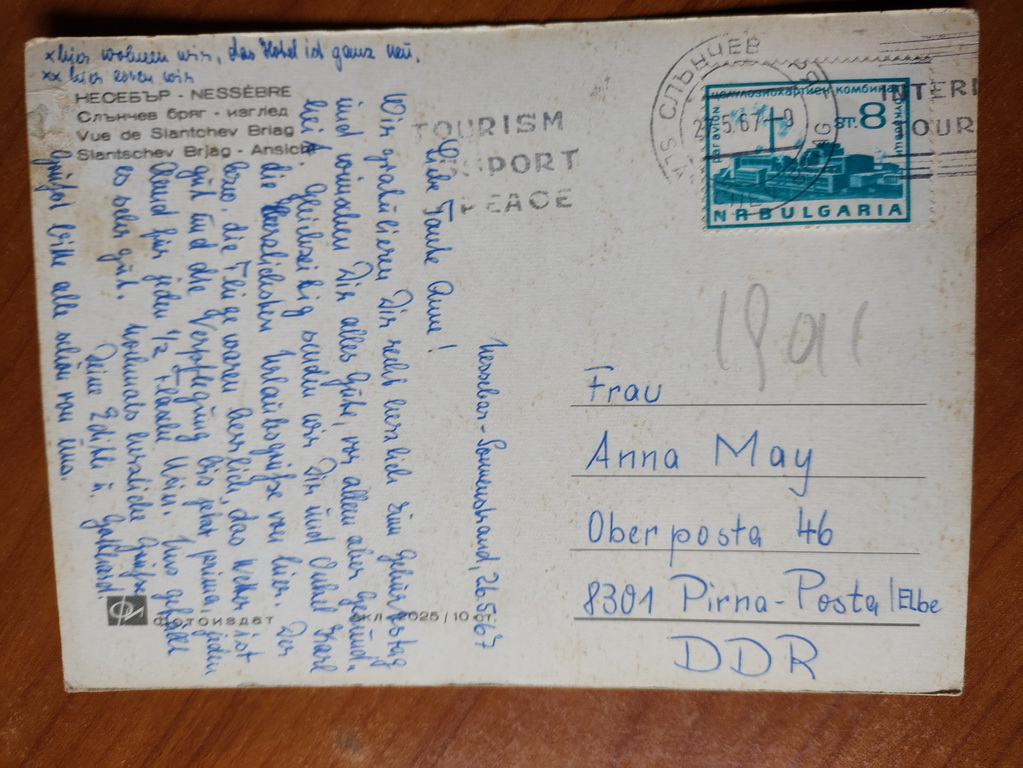 xhier wohnen wir, das Hotel ist ganz neu.
xx hier essen wir
НЕСЕБЪР - NESSÈBRE
Слънчев бряг - изглед
Vue de Slantchev Briag
Slantschev Brjag - Ansicht
Nesseber-Sonnenstrand, 26.5.67
Liebe Tante Anne!
Wir gratulieren Dir recht herzlich zum Geburtstag
und wünschen Dir alles Gute, vor allem aber Gesund-
heit. Gleichzeitig senden wir Dir und Onkel Karl
die herzlichsten Urlaubsgrüße von hier. Der
die Flüge waren herrlich, das Wetter ist
gut und die Verpflegung bis jetzt prima, jeden
Abend für jeden 1/2 Flasche Wein. Uns gefällt
es sehr gut. Nochmals herzliche Grüße
Deine Edith u. Gotthard
Grüßt bitte alle schön von uns.
ФОТОИЗДАТ
2025/10 ст.
TOURISM
PASSPORT
PEACE
СЛЪНЧЕВ
5.67-9
INTERN
TOUR
целулознохартиен комбинат
par avion
ст. 8
NRBULGARIA
Frau
Anna May
Oberposta 46
8301 Pirna-Posta/Elbe
DDR